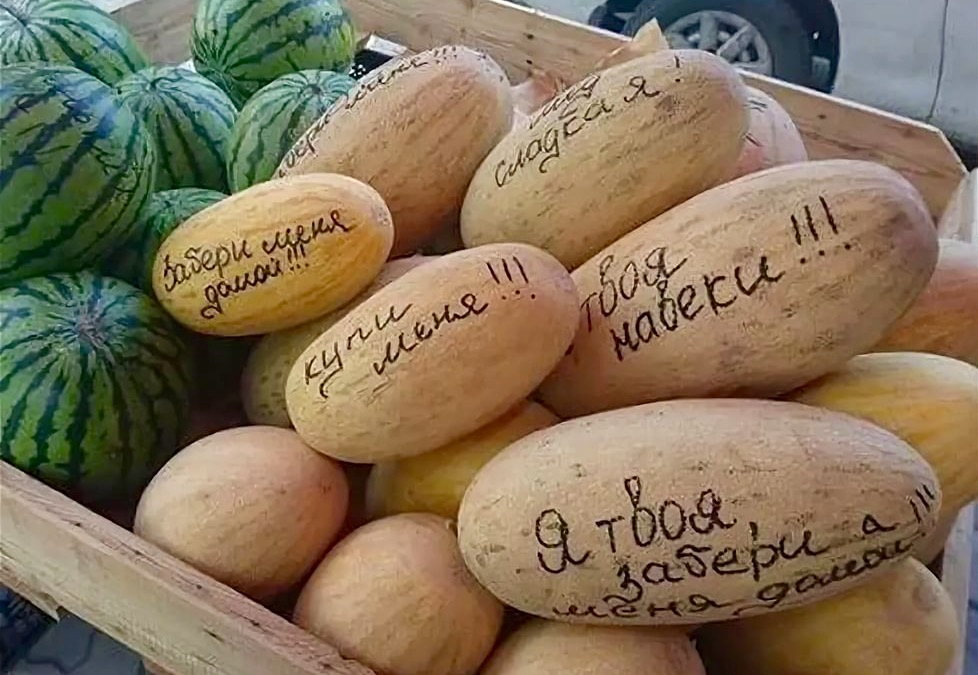 бери меня!!!
сладкая!
Забери меня
домой!!!
купи
меня!!!
твоя
навеки!!!
Я твоя,
забери а
меня домой!!!